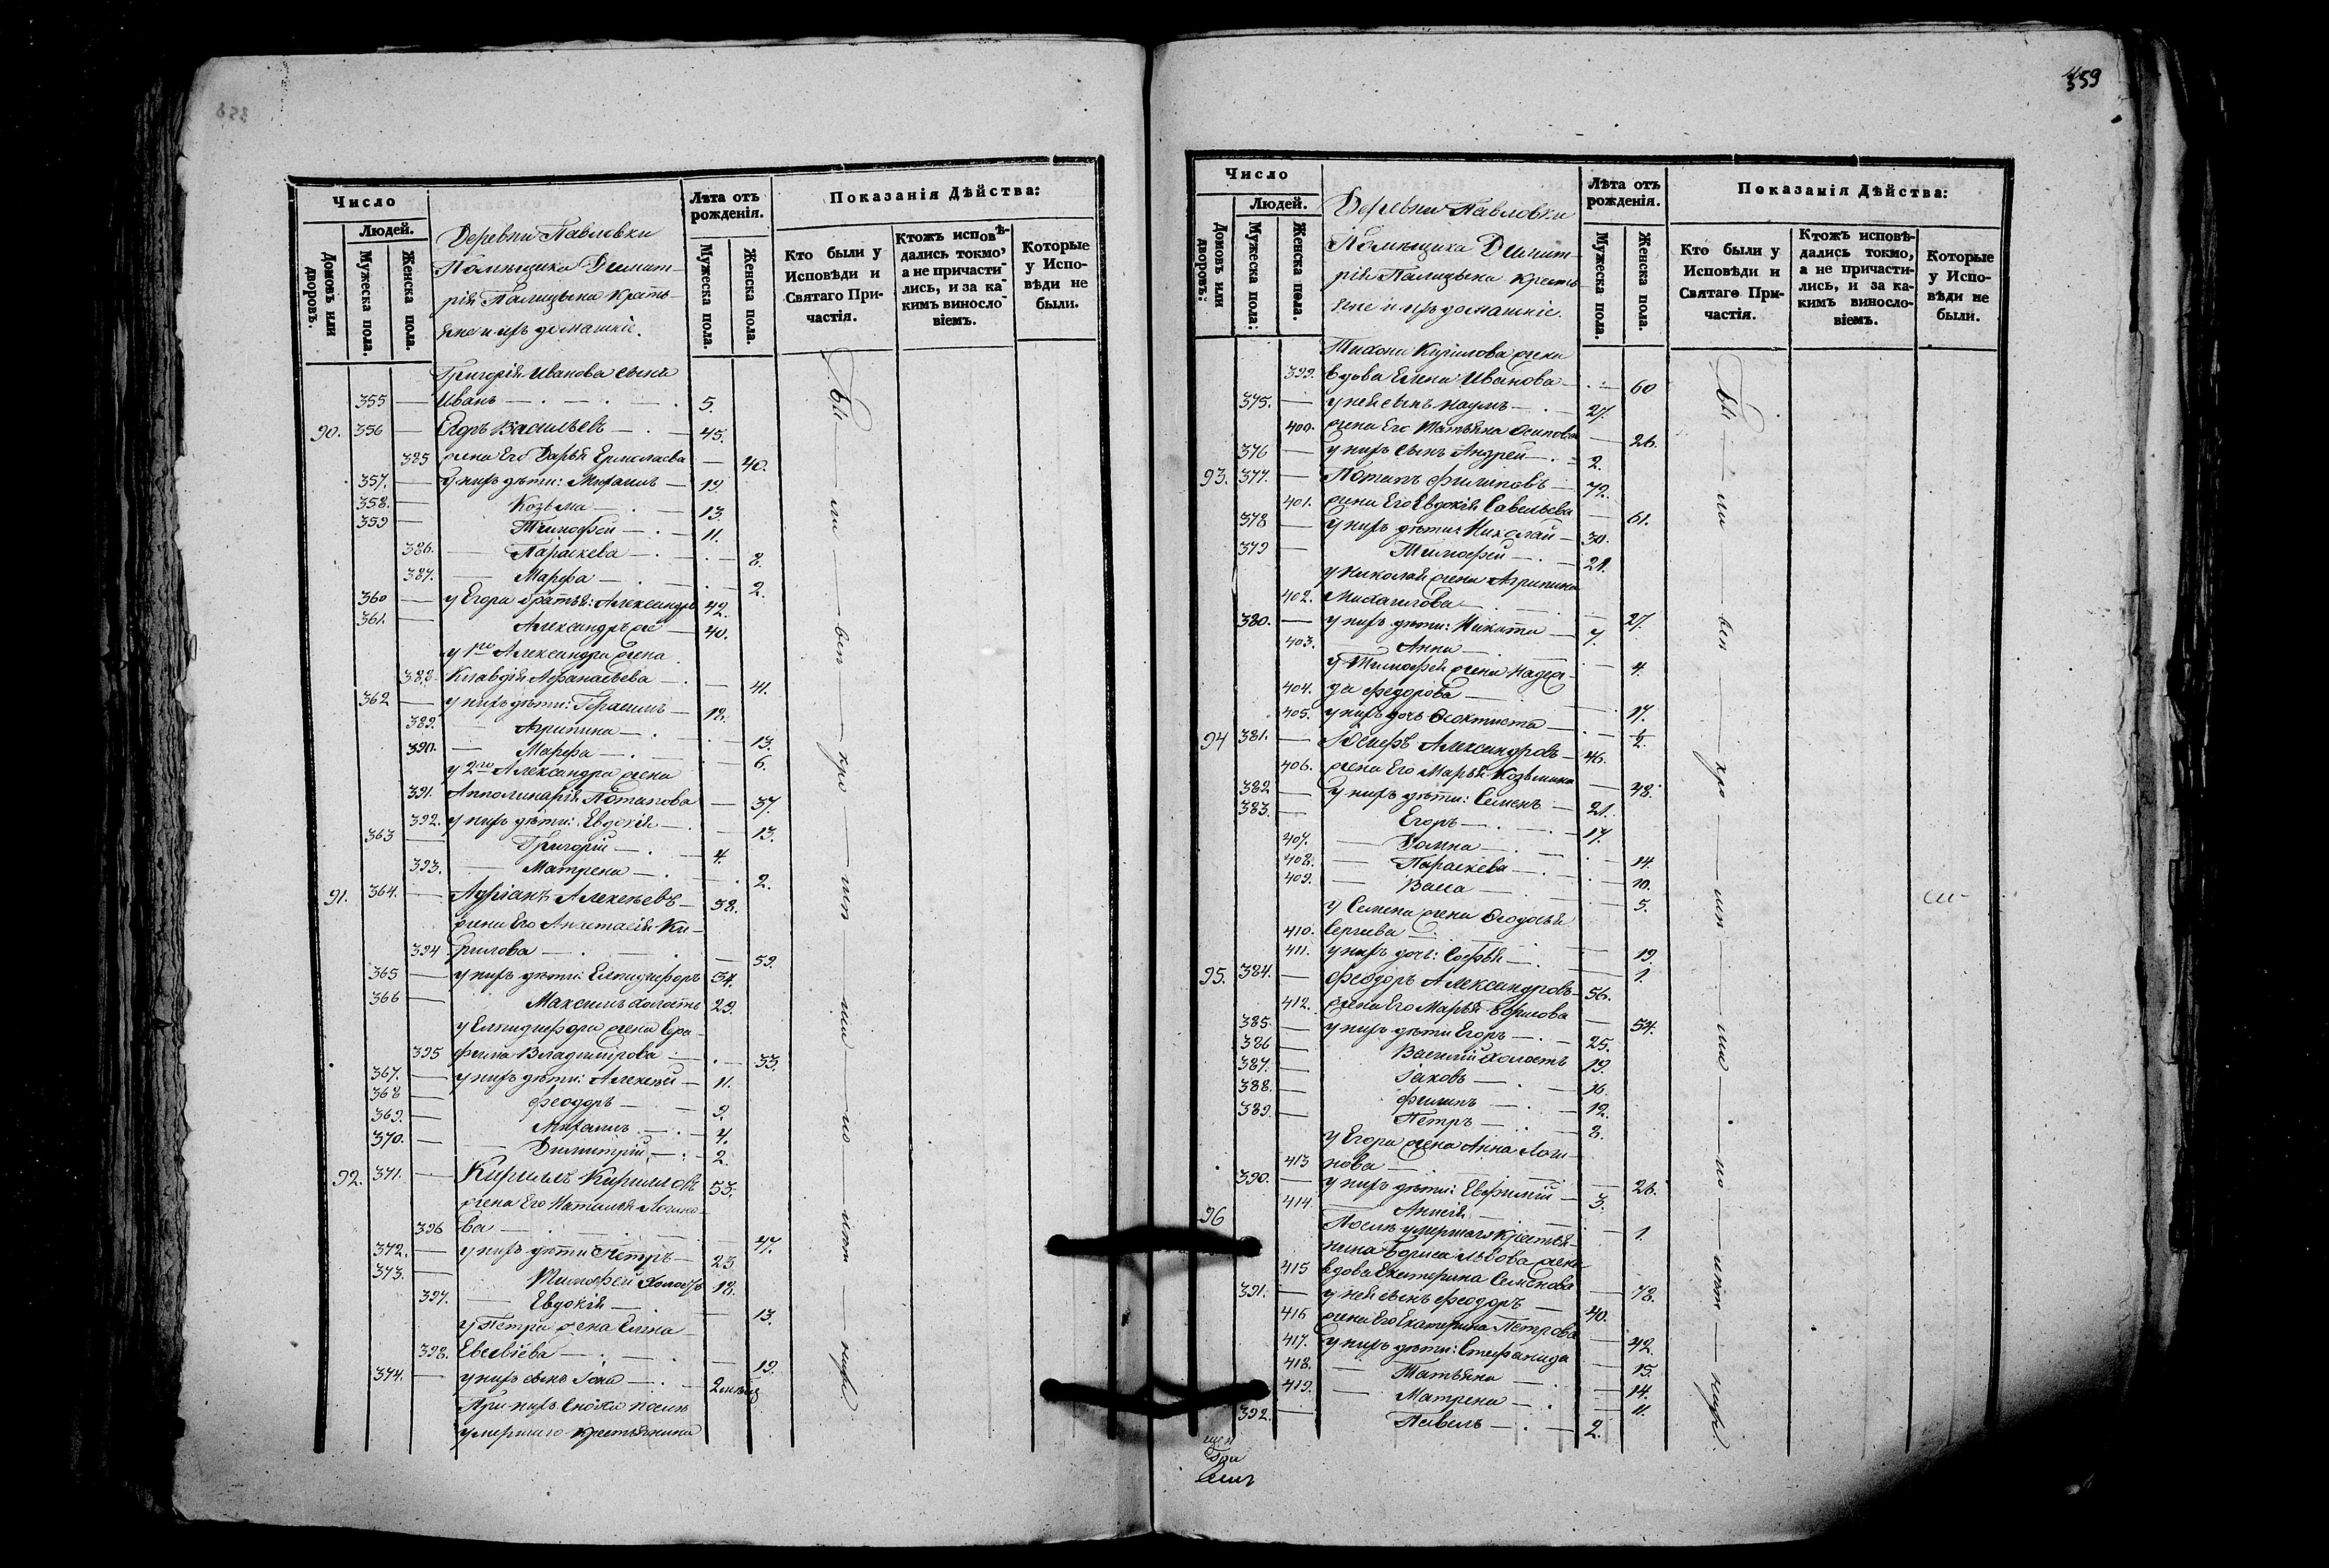 Число
Людей.
Домовъ или дворовъ.
Мужеска пола.
Женска пола.
Деревни Павловки
Помѣщика Димит-
рія Палицына Кресть-
яне и ихъ домашніе.
Лѣта отъ рожденія.
Мужеска пола.
Женска пола.
Показанія Дѣйства:
Кто были у Исповѣди и Святаго При-частія.
Ктожъ исповѣ-дались токмо, а не причасти-лись, и за ка-кимъ виносло-віемъ.
Которые у Испо-вѣди не были.
Григорія Иванова сынъ
355 Иванъ 5.
90. 356 Егоръ Васильевъ 45.
385 жена Его Дарья Ермолаева 40.
357. у нихъ дѣти: Михаилъ 19.
358. Козьма 13
359 Тимофей 11.
386. Параскева 8.
387. Марфа 2.
360 у Егора братья: Александръ 42.
361. Александръ же 40.
у 1го Александра жена
388 Клавдія Афанасьева 41.
362 у нихъ дѣти: Герасимъ 18.
389. Агрипина 13.
390. Марфа 6.
у 2го Александра жена
391. Апполинарія Потапова 37.
392. у нихъ дѣти: Евдокія 13.
363 Григорій 4.
393. Матрена 2.
91. 364. Адріанъ Алексѣевъ 58.
жена Его Анастасія Ки-
394 рилова 59.
365 у нихъ дѣти: Елпидифоръ 34.
366 Максимъ холостъ 29.
у Елпидифора жена Сера-
395 фима Владимірова 33.
367. у нихъ дѣти: Алексѣй 11.
368 Феодоръ 9.
369. Михаилъ 4.
370. Димитрій 2.
92. 371. Кирилъ Кириловъ 53.
жена Его Наталья Логино-
396 ва 47.
372. у нихъ дѣти Петръ 23
373. Тимофей холостъ 18.
397. Евдокія 13.
у Петра жена Елена
398. Евсевіева 19.
374. у нихъ сынъ Іона 2
При нихъ сноха послѣ
умершаго крестьянина
Бы ли вси при ни ми но
359
Число
Людей.
Домовъ или дворовъ:
Мужеска пола:
Женска пола.
Деревни Павловки
Помѣщика Димит-
рія Палицына Кресть-
яне и ихъ домашніе.
Лѣта отъ рожденія.
Мужеска пола.
Женска пола.
Показанія Дѣйства:
Кто были у Исповѣди и Святаго При-частія.
Ктожъ исповѣ-дались токмо, а не причасти-лись, и за ка-кимъ виносло-віемъ.
Которые у Испо-вѣди не были.
Тихона Кирилова жена
399. вдова Елена Иванова 60
375. у ней сынъ Наумъ 27.
400. жена Его Татьяна Осипова 26.
376 у нихъ сынъ Андрей 2.
93. 377. Потапъ Филиповъ 72.
401. жена Его Евдокія Савельева 61.
378 у нихъ дѣти: Николай 30.
379 Тимофей 21.
у Николая жена Агрипина
402. Михаилова 27.
380. у нихъ дѣти: Никита 7.
403. Анна 4.
у Тимофея жена Надеж-
404. да Федорова 17.
405. у нихъ дочь Феоктиста
94 381. Іосифъ Александровъ 46.
406. жена Его Марья Козьмина 48.
382 у нихъ дѣти: Семенъ 21.
383. Егоръ 17.
407. Домна 14.
408. Параскева 10.
409. Васса 5.
у Семена жена Феодосья
410. Сергѣева 19.
411. у нихъ дочь: Софья 1.
95. 384. Феодоръ Александровъ 56.
412. жена Его Марья Борисова 54.
385. у нихъ дѣти Егоръ 25.
386 Василій холостъ 19.
387. Іаковъ 16.
388. Филипъ 12.
389. Петръ 8.
у Егора жена Анна Логи-
413 нова 26.
390. у нихъ дѣти: Евфимій 3.
414. Анисія 1.
96 Послѣ умершаго крестья-
нина Бориса Львова жена
415 вдова Екатерина Семенова 78.
391. у ней сынъ Феодоръ 40.
416 жена Его Екатерина Петрова 42.
417. у нихъ дѣти: Стефанида 15.
418. Татьяна 14.
419. Матрена 11.
392. Павелъ 2.